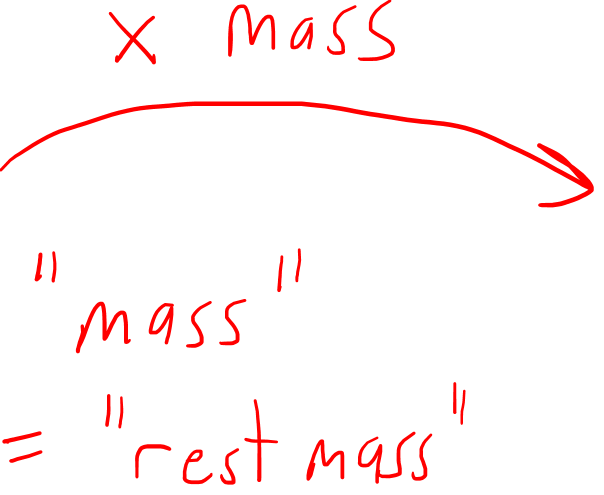 x mass
"mass"
= "rest mass"